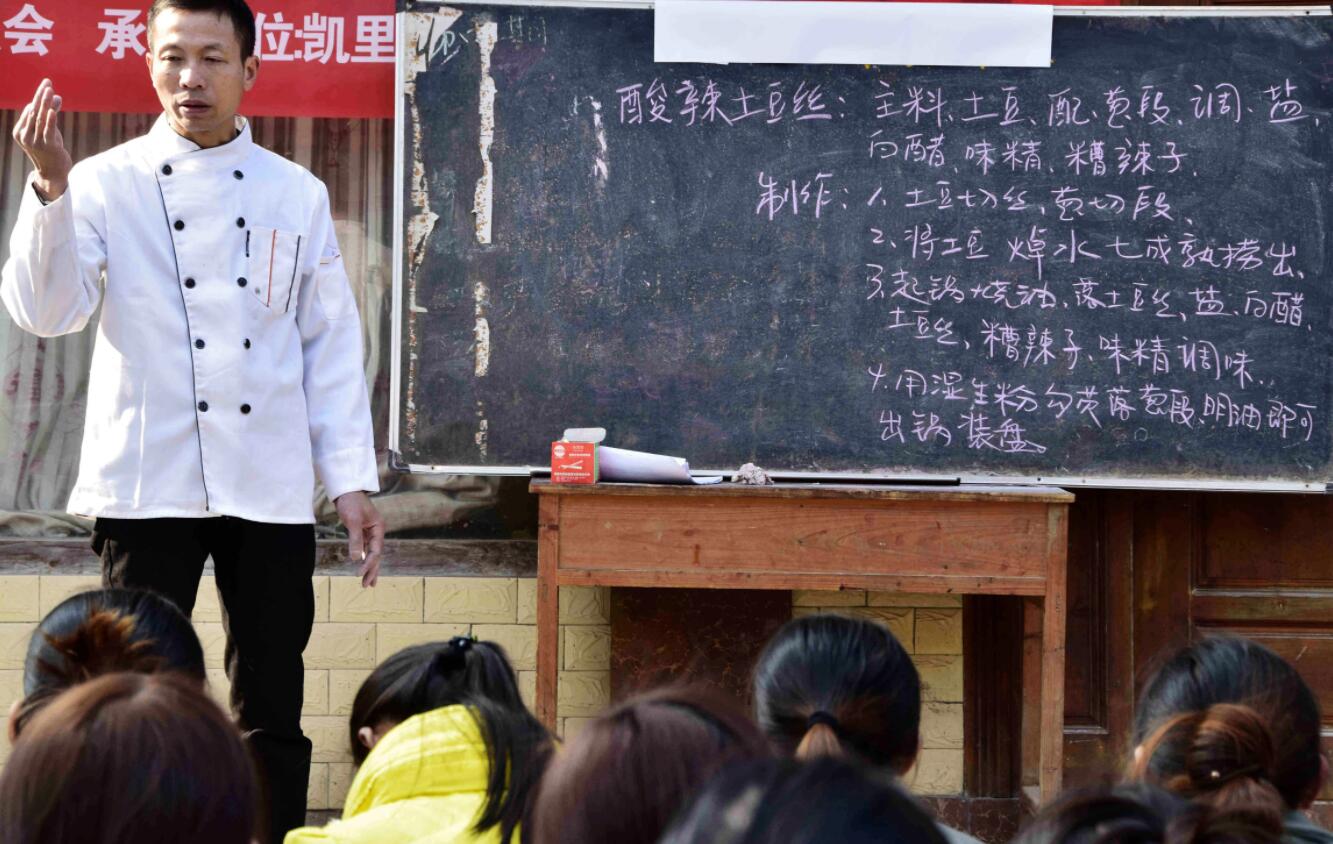 会 承 位:凯里
酸辣土豆丝：主料、土豆、配、葱段、调、盐、
白醋、味精、糟辣子、
制作：1、土豆切丝、葱切段、
2、将土豆焯水七成熟捞出、
3、起锅烧油、落土豆丝、盐、白醋、
土豆丝、糟辣子、味精调味、
4、用湿生粉勾芡落葱段、明油即可
出锅装盘。